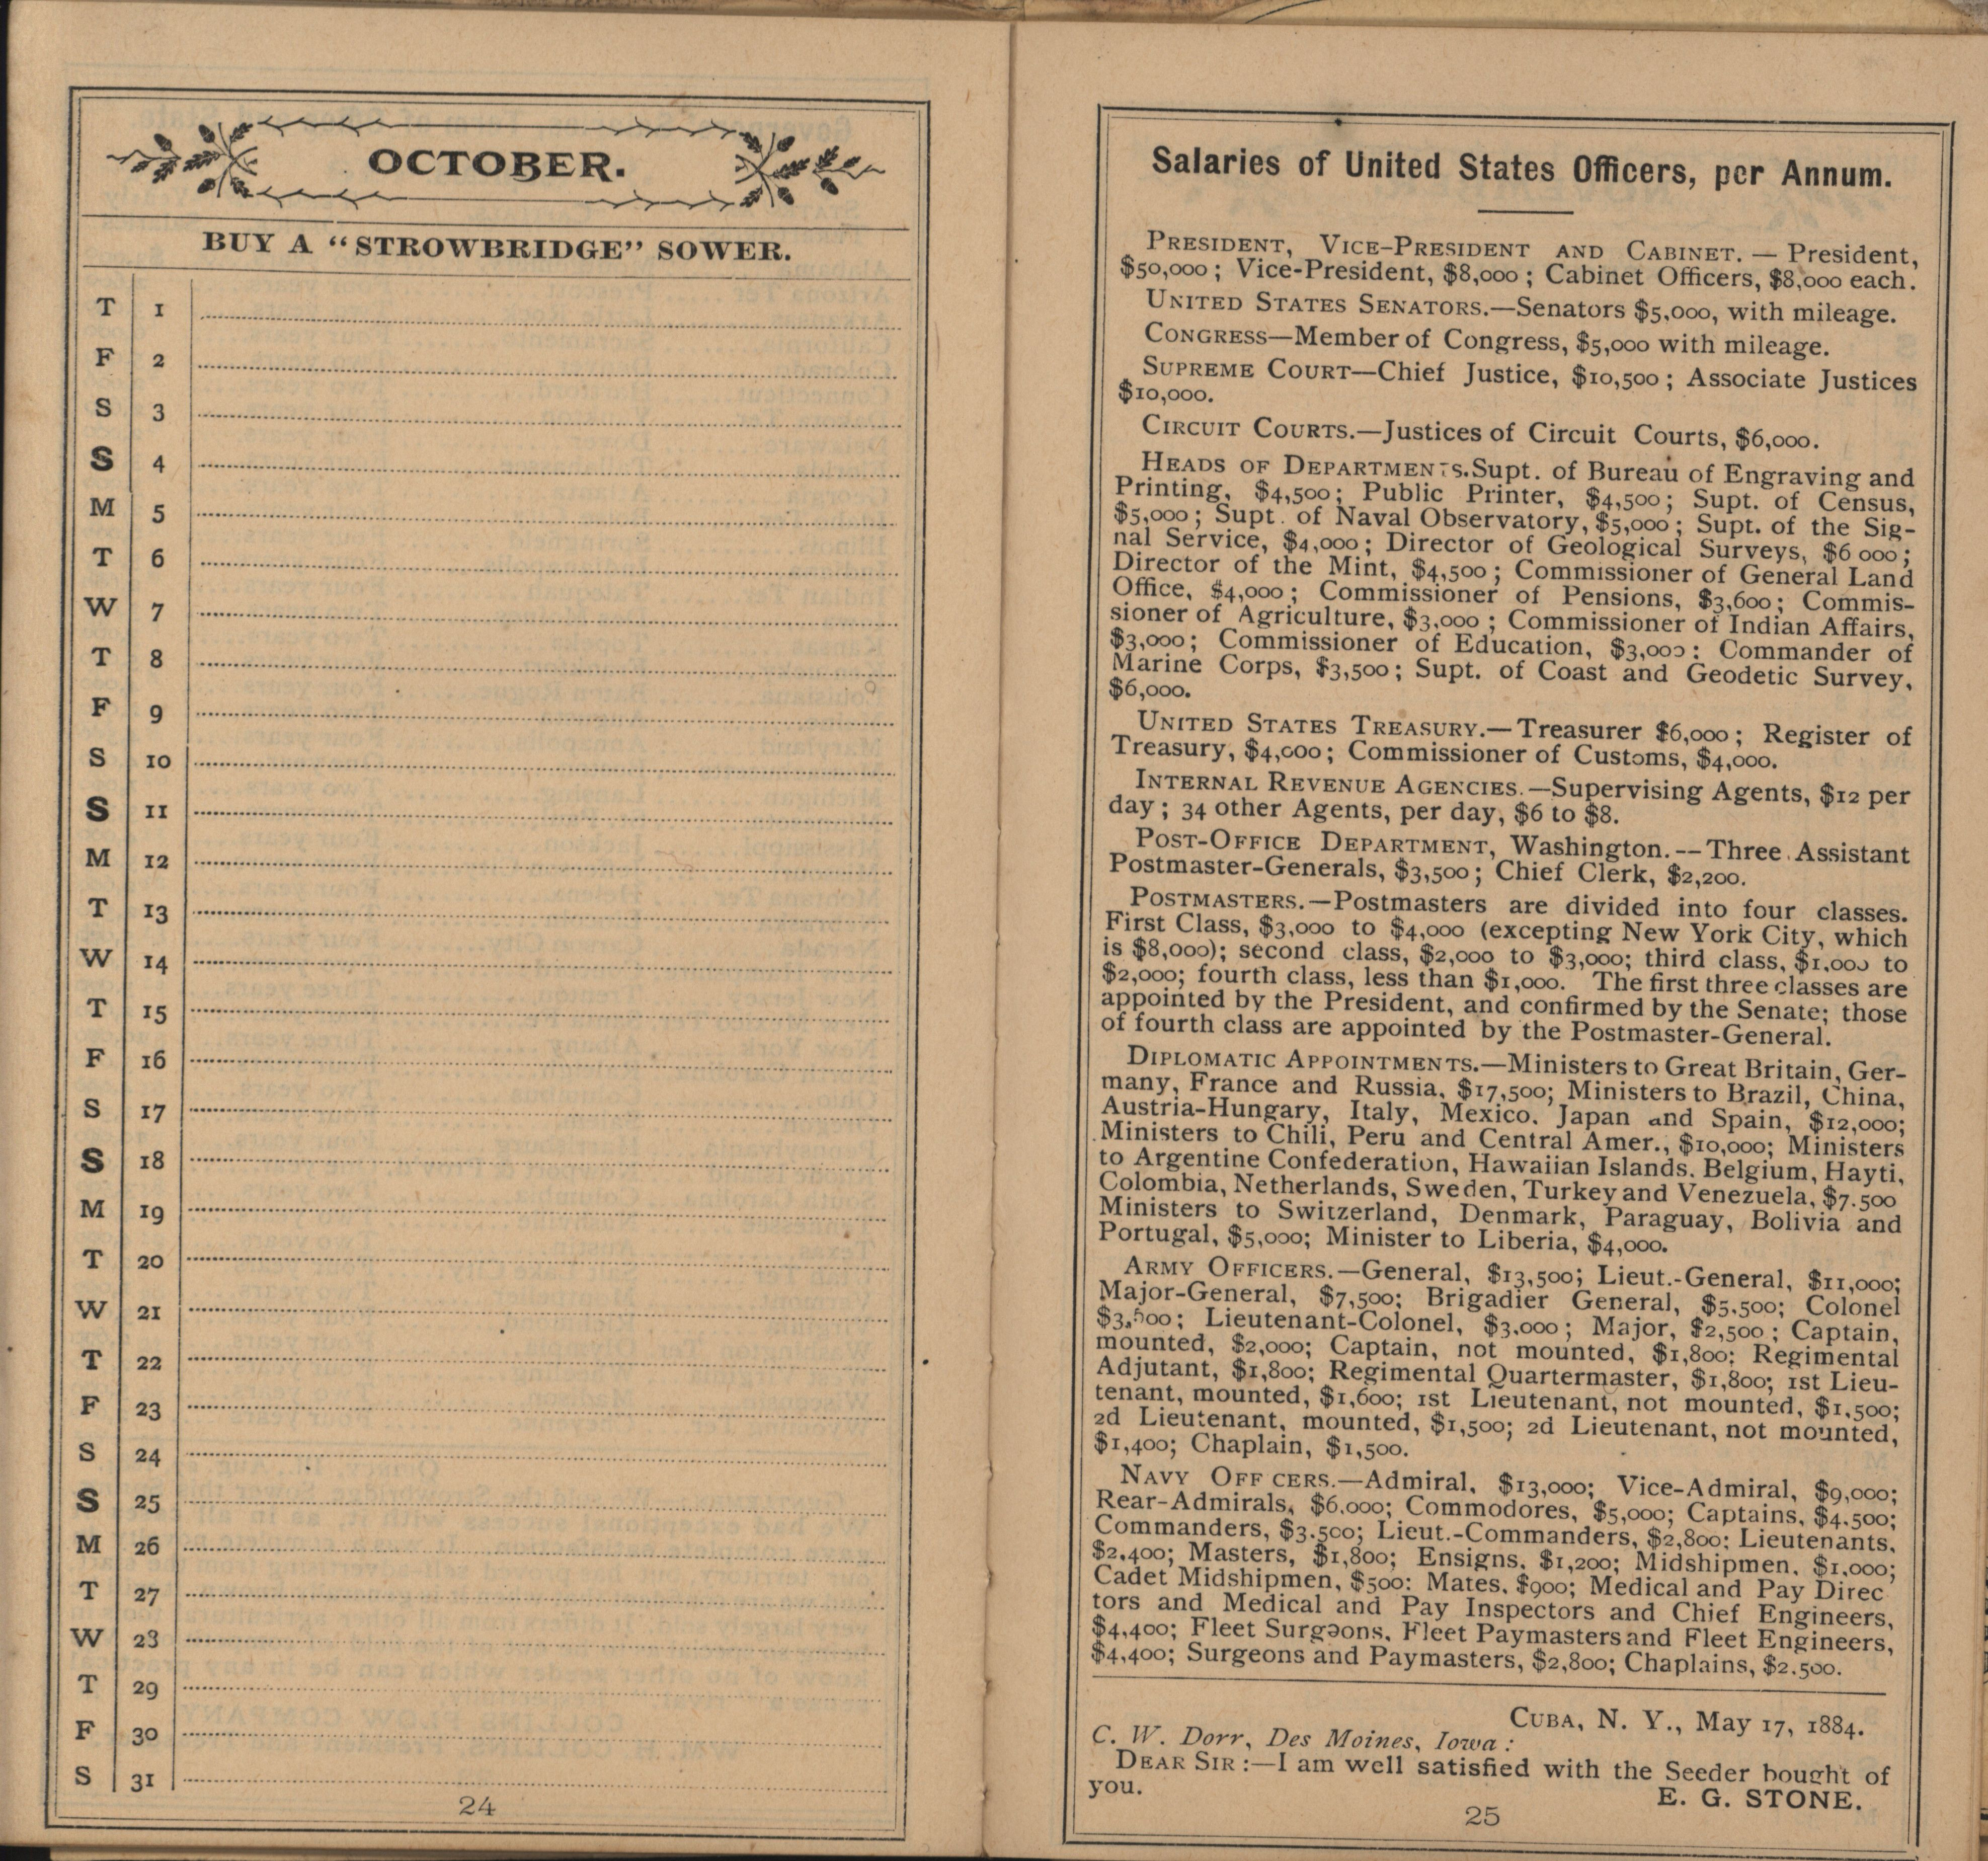 OCTOBER.
BUY A "STROWBRIDGE" SOWER.
T 1
F 2
S 3
S 4
M 5
T 6
W 7
T 8
F 9
S 10
S 11
M 12
T 13
W 14
T 15
F 16
S 17
S 18
M 19
T 20
W 21
T 22
F 23
S 24
S 25
M 26
T 27
W 28
T 29
F 30
S 31
24
Salaries of United States Officers, per Annum.
PRESIDENT, VICE-PRESIDENT AND CABINET. — President,
$50,000; Vice-President, $8,000; Cabinet Officers, $8,000 each.
UNITED STATES SENATORS.—Senators $5,000, with mileage.
CONGRESS—Member of Congress, $5,000 with mileage.
SUPREME COURT—Chief Justice, $10,500; Associate Justices
$10,000.
CIRCUIT COURTS.—Justices of Circuit Courts, $6,000.
HEADS OF DEPARTMENTS.Supt. of Bureau of Engraving and
Printing, $4,500; Public Printer, $4,500; Supt. of Census,
$5,000; Supt. of Naval Observatory, $5,000; Supt. of the Sig-
nal Service, $4,000; Director of Geological Surveys, $6 000;
Director of the Mint, $4,500; Commissioner of General Land
Office, $4,000; Commissioner of Pensions, $3,600; Commis-
sioner of Agriculture, $3,000; Commissioner of Indian Affairs,
$3,000; Commissioner of Education, $3,000: Commander of
Marine Corps, $3,500; Supt. of Coast and Geodetic Survey,
$6,000.
UNITED STATES TREASURY.—Treasurer $6,000; Register of
Treasury, $4,000; Commissioner of Customs, $4,000.
INTERNAL REVENUE AGENCIES.—Supervising Agents, $12 per
day; 34 other Agents, per day, $6 to $8.
POST-OFFICE DEPARTMENT, Washington.--Three Assistant
Postmaster-Generals, $3,500; Chief Clerk, $2,200.
POSTMASTERS.—Postmasters are divided into four classes.
First Class, $3,000 to $4,000 (excepting New York City, which
is $8,000); second class, $2,000 to $3,000; third class, $1,000 to
$2,000; fourth class, less than $1,000. The first three classes are
appointed by the President, and confirmed by the Senate; those
of fourth class are appointed by the Postmaster-General.
DIPLOMATIC APPOINTMENTS.—Ministers to Great Britain, Ger-
many, France and Russia, $17,500; Ministers to Brazil, China,
Austria-Hungary, Italy, Mexico. Japan and Spain, $12,000;
Ministers to Chili, Peru and Central Amer., $10,000; Ministers
to Argentine Confederation, Hawaiian Islands. Belgium, Hayti,
Colombia, Netherlands, Sweden, Turkey and Venezuela, $7.500
Ministers to Switzerland, Denmark, Paraguay, Bolivia and
Portugal, $5,000; Minister to Liberia, $4,000.
ARMY OFFICERS.—General, $13,500; Lieut.-General, $11,000;
Major-General, $7,500; Brigadier General, $5,500; Colonel
$3,500; Lieutenant-Colonel, $3,000; Major, $2,500; Captain,
mounted, $2,000; Captain, not mounted, $1,800; Regimental
Adjutant, $1,800; Regimental Quartermaster, $1,800; 1st Lieu-
tenant, mounted, $1,600; 1st Lieutenant, not mounted, $1,500;
2d Lieutenant, mounted, $1,500; 2d Lieutenant, not mounted,
$1,400; Chaplain, $1,500.
NAVY OFF CERS.—Admiral, $13,000; Vice-Admiral, $9,000;
Rear-Admirals, $6,000; Commodores, $5,000; Captains, $4,500;
Commanders, $3.500; Lieut.-Commanders, $2,800; Lieutenants,
$2,400; Masters, $1,800; Ensigns, $1,200; Midshipmen, $1,000;
Cadet Midshipmen, $500: Mates, $900; Medical and Pay Direc
tors and Medical and Pay Inspectors and Chief Engineers,
$4,400; Fleet Surgeons, Fleet Paymasters and Fleet Engineers,
$4,400; Surgeons and Paymasters, $2,800; Chaplains, $2.500.
CUBA, N. Y., May 17, 1884.
C. W. Dorr, Des Moines, Iowa:
DEAR SIR:—I am well satisfied with the Seeder bought of
you.
E. G. STONE.
25